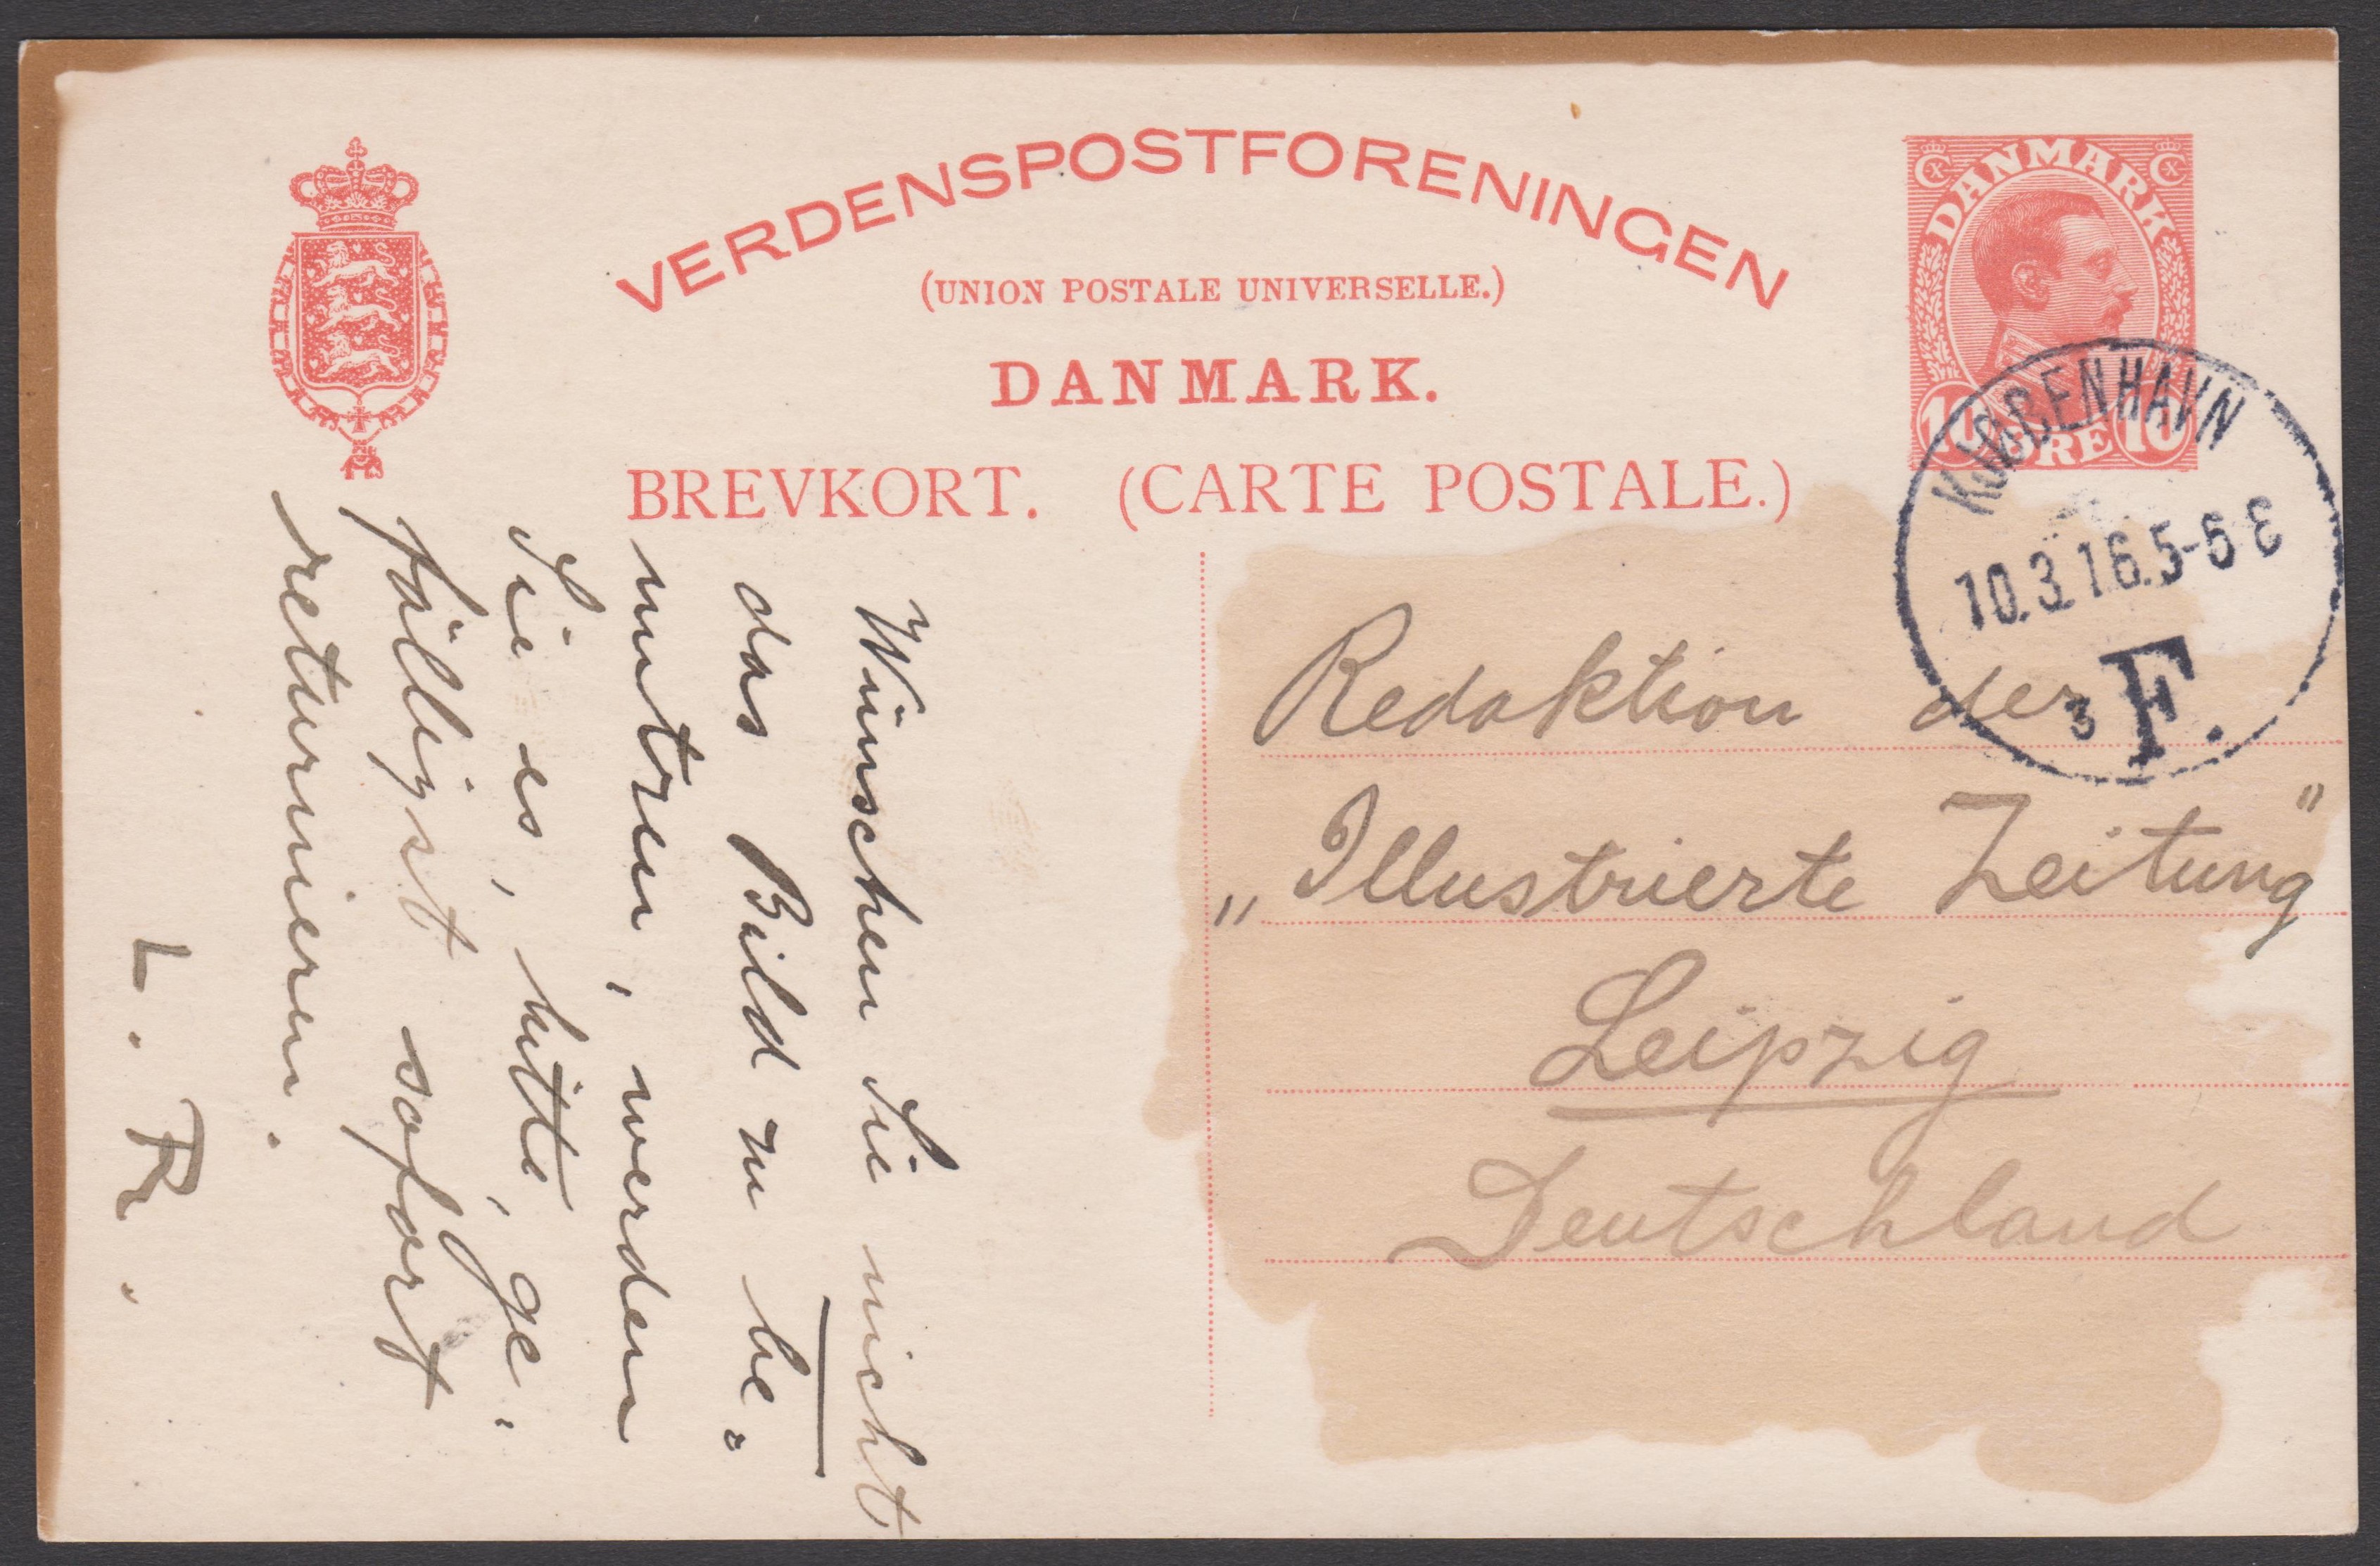 VERDENSPOSTFORENINGEN
(UNION POSTALE UNIVERSELLE.)
DANMARK.
BREVKORT. (CARTE POSTALE.)
DANMARK
10 ØRE 10
KJØBENHAVN
10.3.16.5-6 E
3 F.
Redaktion der
„Illustrierte Zeitung"
Leipzig
Deutschland
Wünschen Sie nicht
das Bild zu be=
nutzen, werden
Sie es, bitte, ge=
fälligst sofort
returnieren.
L. R.